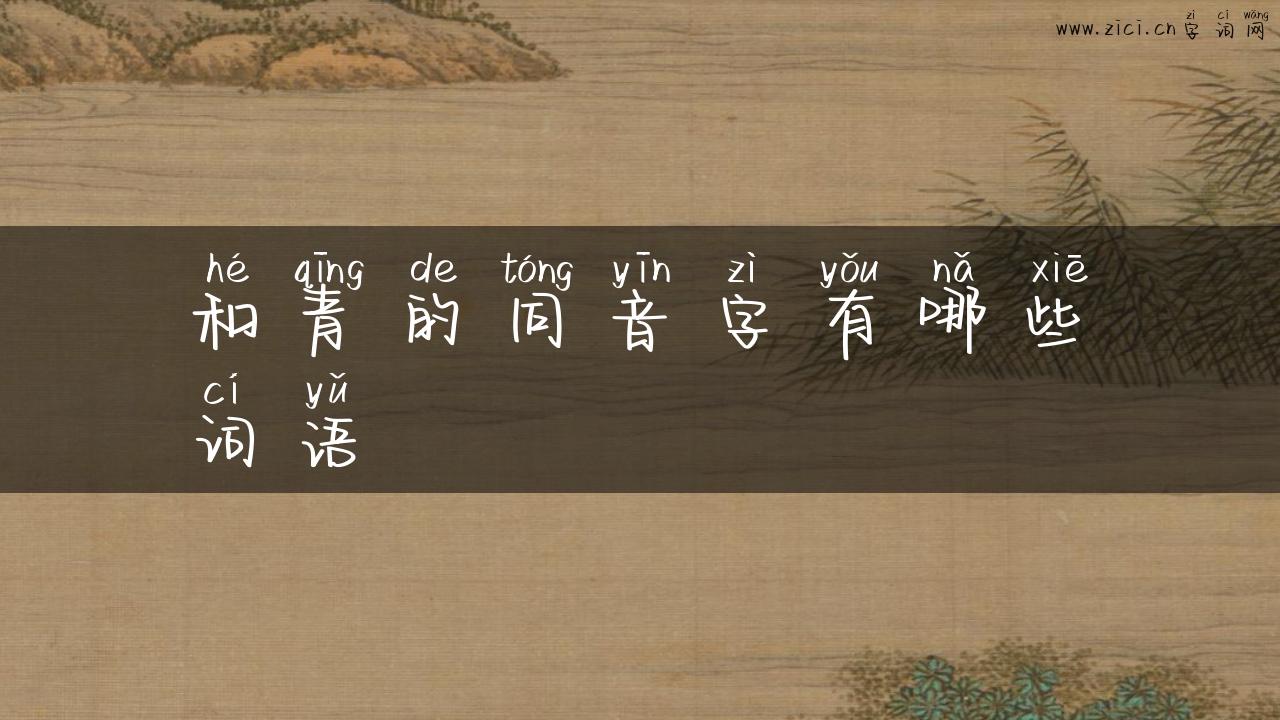 zì cí wǎng
www.zici.cn 字 词 网
hé qīng de tóng yīn zì yǒu nǎ xiē
和 青 的 同 音 字 有 哪 些
cí yǔ
词 语